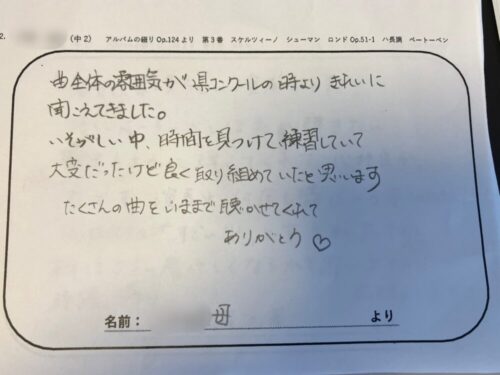 2. (中2) アルバムの綴りOp.124より 第3番 スケルツィーノ シューマン ロンドOp.51-1 ハ長調 ベートーベン
曲全体の雰囲気が県コンクールの時より きれいに
聞こえてきました。
いそがしい中、時間を見つけて、練習していて
大変だったけど良く取り組めていたと思います
たくさんの曲をいままで聴かせてくれて
ありがとう♡
名前： 母 より